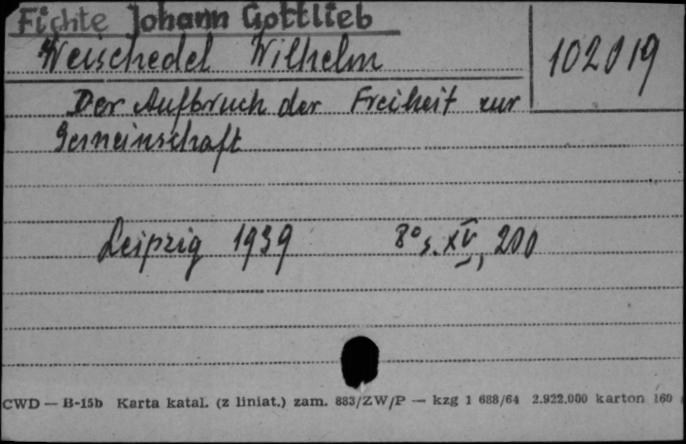 Fichte Johann Gottlieb
Weischedel Wilhelm
102019
Der Aufbruch der Freiheit zur
Gemeinschaft
Leipzig 1939 8° s. XV, 200
CWD — B-15b Karta katal. (z liniat.) zam. 883/ZW/P — kzg 1 688/64 2.922.000 karton 160